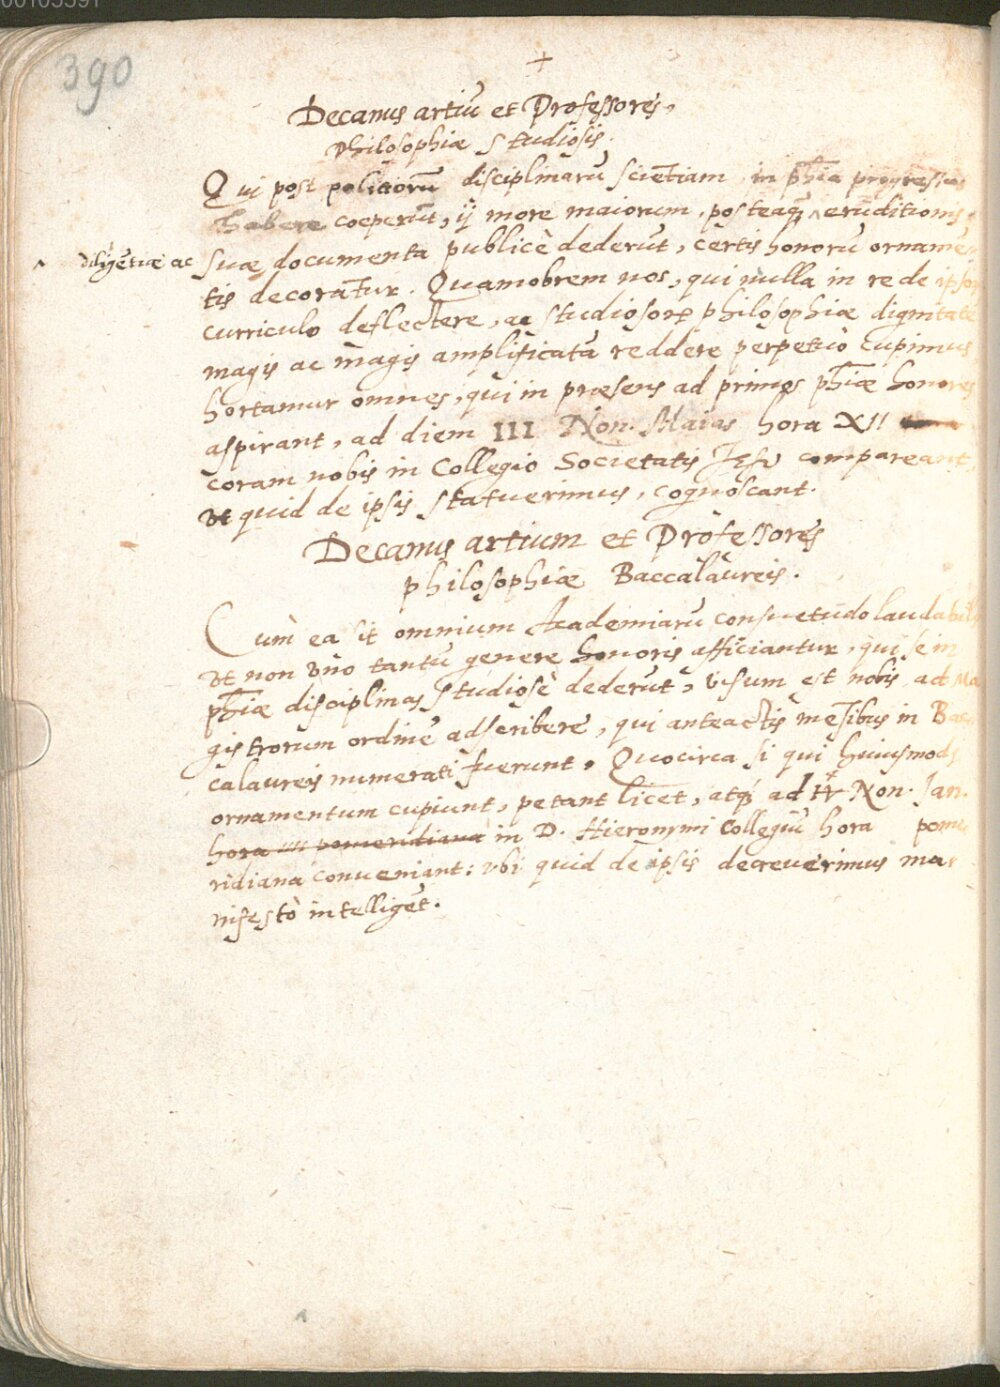 390
+
Decanus artiū et Professores,
Philosophiæ studiosis.
Qui post politiorū disciplinarū sciētiam in phīa progressus
habere coeperūt, ij more maiorum, posteaq̃ ^ eruditionis
^ diligētiæ ac
suæ documenta publicè dederūt, certis honorū ornamē-
tis decorātur. Quamobrem nos, qui nulla in re de ipsor
curriculo deflectere, ac studiosorꝝ philosophiæ dignitatē
magis ac magis amplificatā reddere perpetuò cupimus
hortamur omnes, qui in præsens ad primos phīæ honores
aspirant, ad diem III Non. Maias hora XII
coram nobis in Collegio Societatis Jesu compareant,
et quid de ipsis statuerimus, cognoscant.
Decanus artium et Professores
philosophiæ Baccalaureis.
Cum ea sit omnium Academiarū consuetudo laudabilis
ut non uno tantū genere honoris afficiantur, qui se in
phīæ disciplinas studiosè dederūt, visum est nobis ad Ma
gistrorum ordinē adscribere, qui anteactis mēsibus in Bac
calaureis numerati fuerunt. Quocirca si qui huiusmodi
ornamentum cupiunt, petant licet, atq́ ad Non. Jan.
hora pomeridiana in D. Hieronymi Collegiū hora pome
ridiana conveniant: ubi quid de ipsis decreverimus ma
nifestò intelligēt.